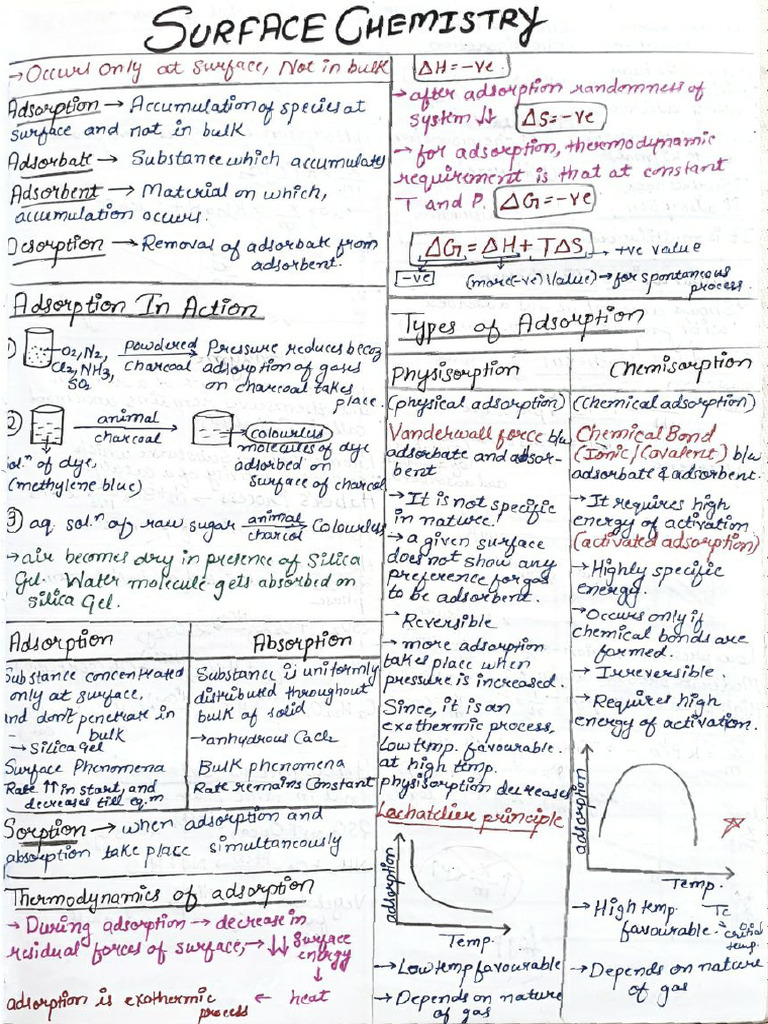 SURFACE CHEMISTRY
→ Occurs Only at surface, Not in bulk
Adsorption → Accumulation of species at
surface and not in bulk
Adsorbate → Substance which accumulates
Adsorbent → Material on which,
accumulation occurs.
Desorption → Removal of adsorbate from
adsorbent.
Adsorption In Action
O2, N2,
Cl2, NH3,
SO2
powdered
charcoal
Pressure reduces becoz
adsorption of gases
on charcoal takes
place.
②
animal
charcoal
colourless
molecules of dye
adsorbed on
surface of charcol
sol.n of dye,
(methylene blue)
③ aq sol.n of raw sugar animal
charcol
Colourless
→ air becomes dry in presence of Silica
Gel. Water molecule gets absorbed on
silica Gel.
Adsorption
Substance concentrated
only at surface,
and don't penetrate in
bulk
→ Silica Gel
Surface Phenomena
Rate ↑↑ in start, and
decreases till eq.m
Absorption
Substance is uniformly
distributed throughout
bulk of solid
→ anhydrous CaCl2
Bulk phenomena
Rate remains Constant
Sorption → when adsorption and
absorption take place simultaneously
Thermodynamics of adsorption
→ During adsorption → decrease in
residual forces of surface, → ↓↓ Surface
energy
↓
adsorption is exothermic process ← heat
ΔH = -ve.
→ after adsorption randomness of
system ↓↓ ΔS = -ve
→ for adsorption, thermodynamic
requirement is that at constant
T and P. ΔG = -ve
ΔG = ΔH + TΔS → +ve value
-ve (more(-ve) value) → for spontaneous
process.
Types of Adsorption
Physisorption
(physical adsorption)
Vanderwall force b/w
adsorbate and adsor-
bent
→ It is not specific
in nature.
→ a given surface
does not show any
preference for gas
to be adsorbent.
→ Reversible
→ more adsorption
takes place when
pressure is increased.
Since, it is an
exothermic process,
low temp. favourable.
at high temp.
physisorption decreases
Lechatelier principle
adsorption
Temp.
→ Low temp favourable
→ Depends on nature
of gas
Chemisorption
(Chemical adsorption)
Chemical Bond
(Ionic/Covalent) b/w
adsorbate & adsorbent.
→ It requires high
energy of activation
(activated adsorption)
→ Highly specific
energy.
→ Occurs only if
chemical bonds are
formed.
→ Irreversible.
→ Requires high
energy of activation.
adsorption
Temp.
→ High temp
favourable.
Tc
critical
temp.
→ Depends on nature
of gas